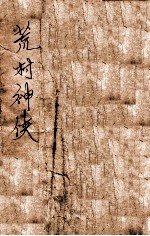 荒村神侠